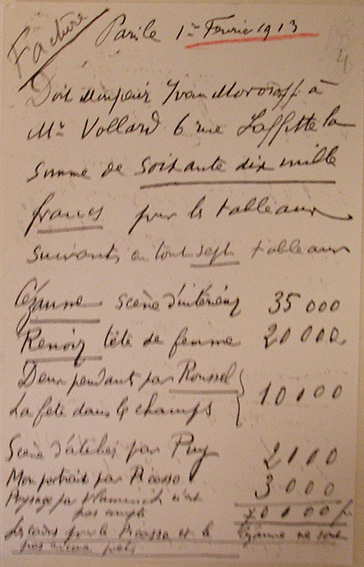 Facture
Paris le 1er Fevrier 1913
Doit Monsieur Ivan Morosoff à
Mr Vollard 6 rue Laffitte la
somme de soixante dix mille
francs pour les tableaux
suivants, en tout sept tableaux
Cézanne scène d'intérieur 35 000
Renoir tête de femme 20 000
Deux pendants par Roussel
La fête dans les champs 10 000
Scène d'atelier par Puy 2000
Mon portrait par Picasso 3000
Paysage par Vlaminck n'est
pas compté 70 000 f
Les cadres pour le Picasso et le Cézanne ne sont
pas encore prêts